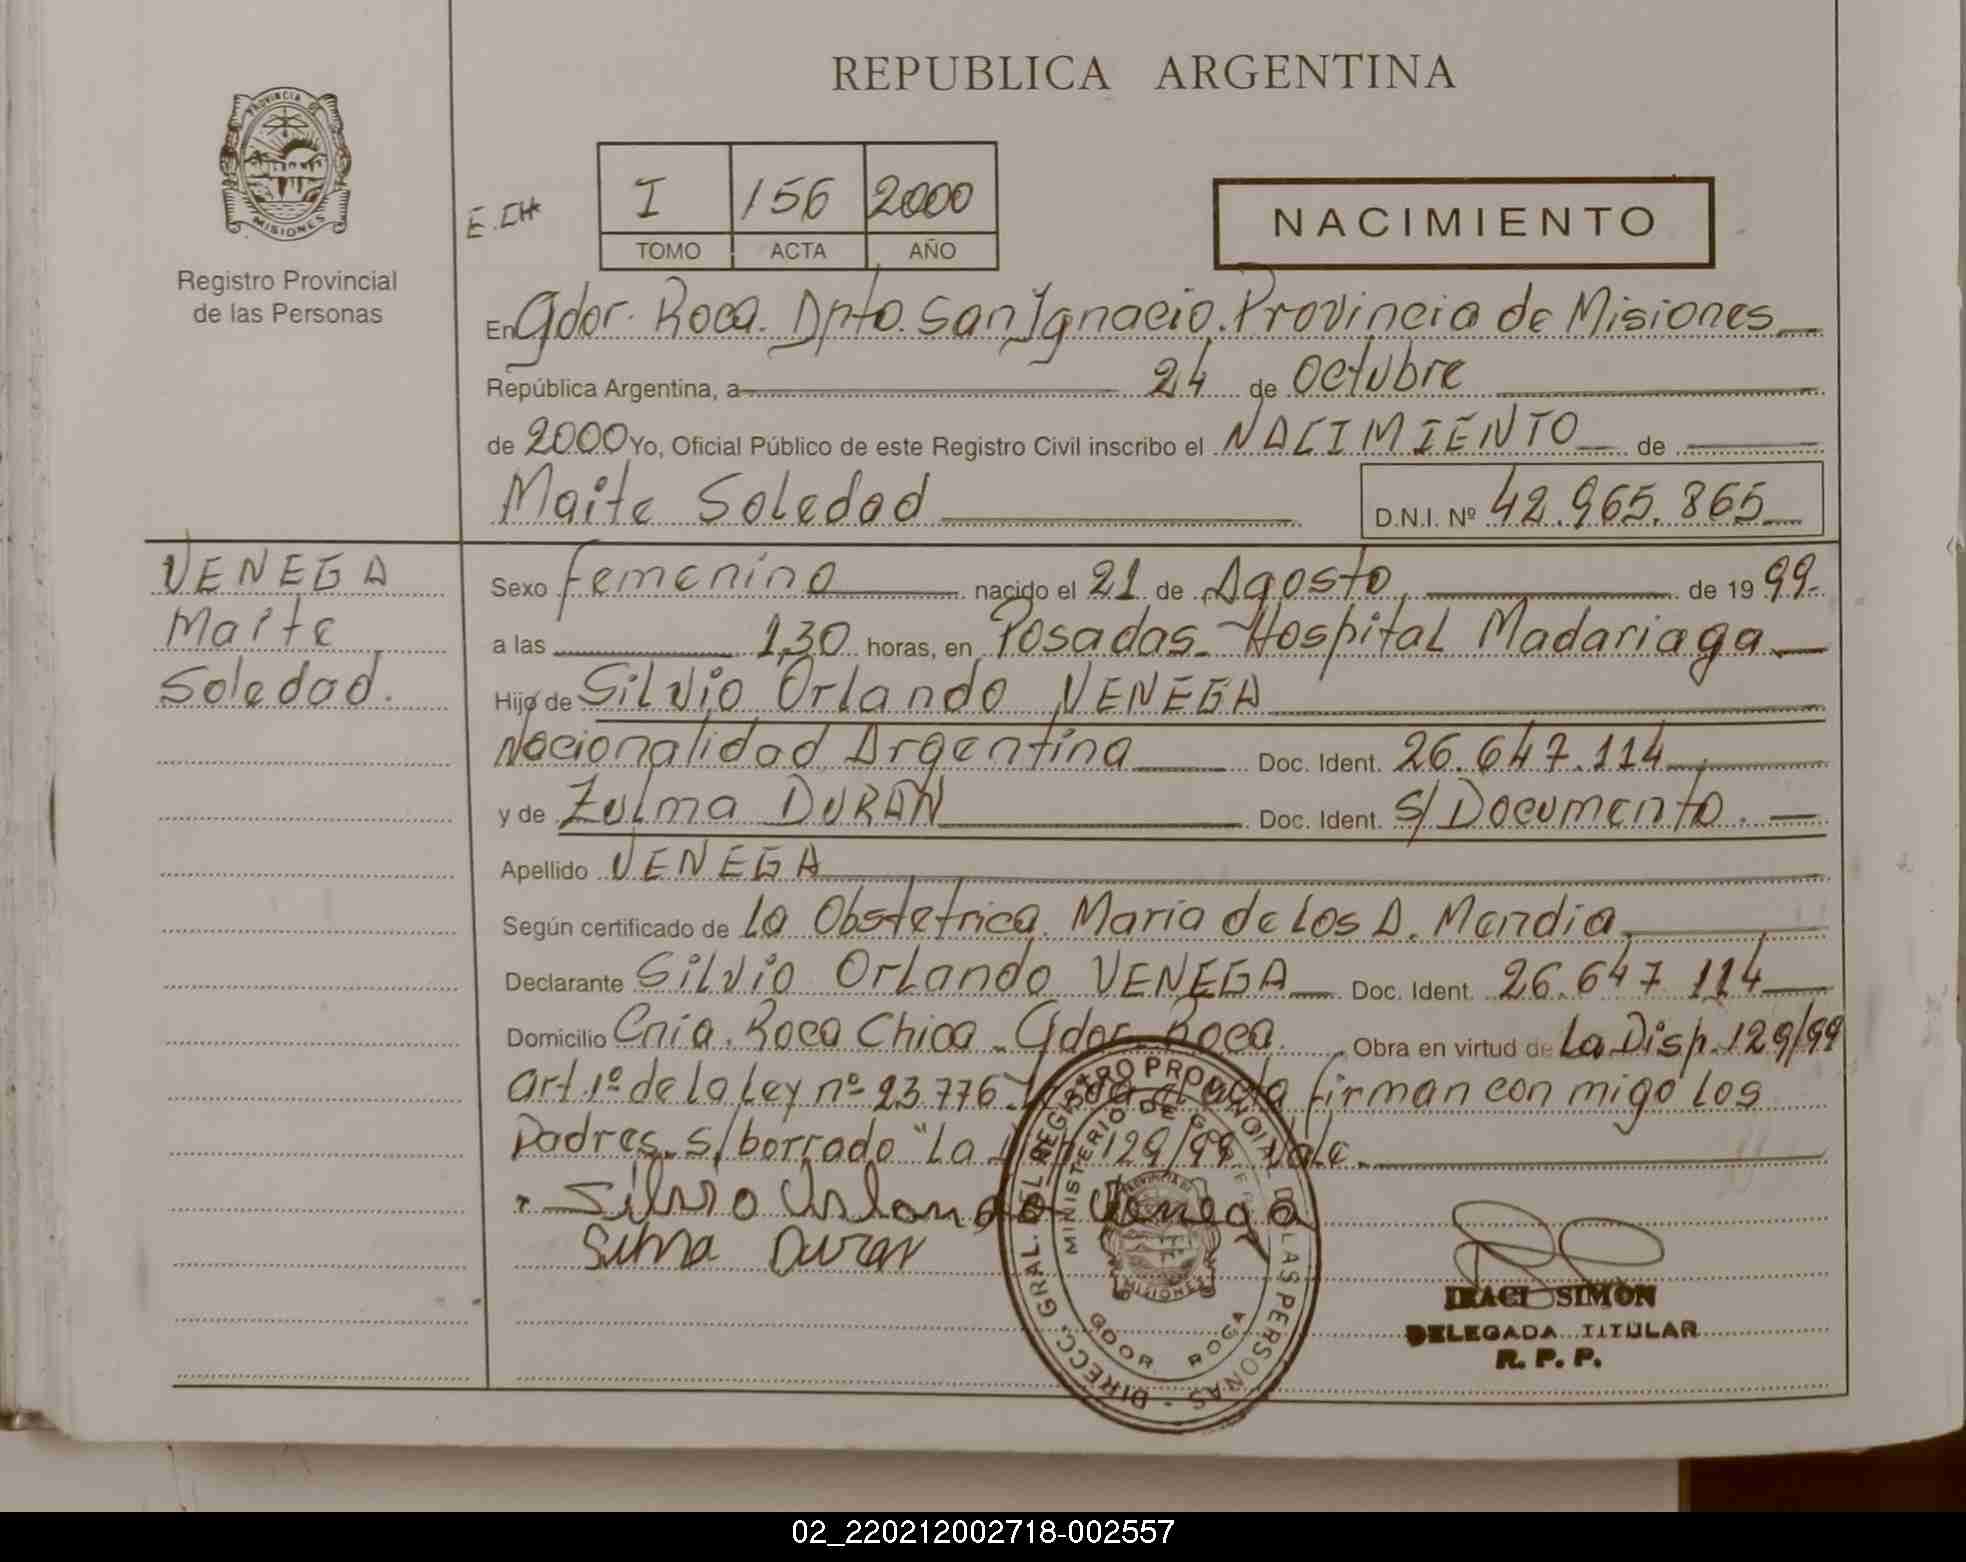 REPUBLICA ARGENTINA
PROVINCIA DE
MISIONES
Registro Provincial
de las Personas
I 156 2000
TOMO ACTA AÑO
NACIMIENTO
En Gdor. Roca. Dpto. San Ignacio. Provincia de Misiones
República Argentina, a 24 de Octubre
de 2000 Yo, Oficial Público de este Registro Civil inscribo el NACIMIENTO de
Maite Soledad D.N.I. Nº 42.965.865
VENEGA
Maite
Soledad.
Sexo femenino nacido el 21 de Agosto de 1999.
a las 1,30 horas, en Posadas - Hospital Madariaga
Hijo de Silvio Orlando VENEGA
Nacionalidad Argentina Doc. Ident. 26.647.114
y de Zulma DURAN Doc. Ident. s/Documento.
Apellido VENEGA
Según certificado de la Obstetrica Maria de los A. Mendia
Declarante Silvio Orlando VENEGA Doc. Ident. 26.647 114
Domicilio Cnia. Roca Chica - Gdor. Roca. Obra en virtud de La Disp. 129/99
art. 1º de la Ley nº 23.776 firman con migo los
Padres. s/borrado "La 129/99 Vale.
Silvio Orlando Venega
Sulma Duran
DIRECC. GRAL. DEL REGISTRO PROVINCIAL DE LAS PERSONAS
MINISTERIO DE GOBIERNO
PROVINCIA DE
MISIONES
GDOR ROCA
IRACI SIMON
DELEGADA TITULAR
R. P. P.
02_220212002718-002557